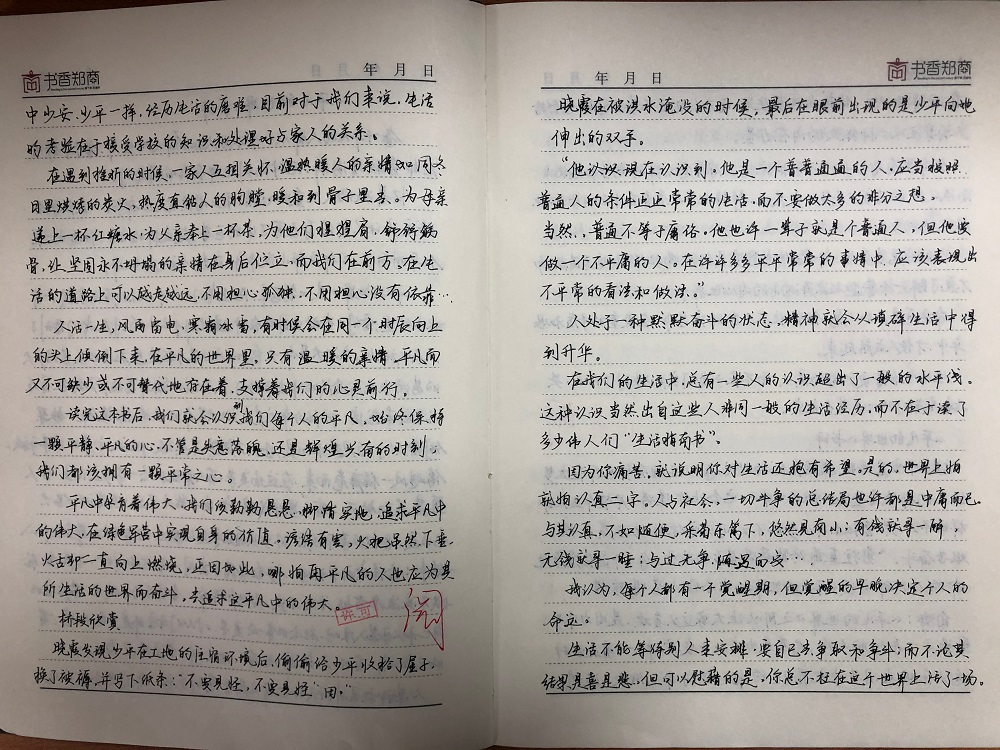 书香郑商
年 月 日
中少安、少平一样,经历生活的磨难,目前对于我们来说,生活
的考验在于接受学校的知识和处理好与家人的关系。
在遇到挫折的时候,一家人互相关怀,温热暖人的亲情如同冬
日里烘烤的炭火,热度直钻人的胸膛,暖和到骨子里去。为母亲
递上一杯红糖水,为父亲奉上一杯茶,为他们捏捏肩,舒舒筋
骨,让坚固永不坍塌的亲情在身后伫立,而我们在前方。在生
活的道路上可以越走越远,不用担心孤独,不用担心没有依靠…
人活一生,风雨雷电,寒霜冰雪,有时候会在同一个时辰向上
的头上倾倒下来,在平凡的世界里,只有温暖的亲情,平凡而
又不可缺少或不可替代地存在着,支撑着我们的心灵前行。
读完这本书后,我们就会认识到我们每个人的平凡,始终保持
一颗平静、平凡的心,不管是失意落魄,还是辉煌兴奋的时刻,
我们都该拥有一颗平常之心。
平凡中孕育着伟大,我们该勤勤恳恳,脚踏实地,追求平凡中
的伟大,在绿色军营中实现自身的价值。谚语有云,火把虽然下垂,
火舌却一直向上燃烧,正因如此,哪怕再平凡的人也应为其
所生活的世界而奋斗,去追求这平凡中的伟大。
许可
阅
桥段欣赏
晓霞发现少平在工地的住宿环境后,偷偷给少平收拾了屋子,
换了被褥,并写下纸条:"不要见怪,不要见怪"田。"
书香郑商
年 月 日
晓霞在被洪水淹没的时候,最后在眼前出现的是少平向她
伸出的双手。
"他认识现在认识到,他是一个普普通通的人,应当按照
普通人的条件正正常常的生活,而不要做太多的非分之想。
当然,普通不等于庸俗。他也许一辈子就是个普通人,但他要
做一个不平庸的人。在许许多多平平常常的事情中,应该表现出
不平常的看法和做法。"
人处于一种默默奋斗的状态,精神就会从琐碎生活中得
到升华。
在我们的生活中,总有一些人的认识超出了一般的水平线。
这种认识当然出自这些人非同一般的生活经历,而不在于读了
多少伟人们"生活指南书"。
因为你痛苦,就说明你对生活还抱有希望。是的,世界上怕
就怕认真二字。人与社会,一切斗争的总结局也许都是中庸而已。
与其认真,不如随便,采菊东篱下,悠然见南山;有钱就寻一醉,
无钱就寻一睡;与过无争,随遇而安…
我认为,每个人都有一个觉醒期,但觉醒的早晚决定个人的
命运。
生活不能等待别人来安排,要自己去争取和争斗;而不论其
结果是喜是悲,但可以慰藉的是,你总不枉在这个世界上活了一场。